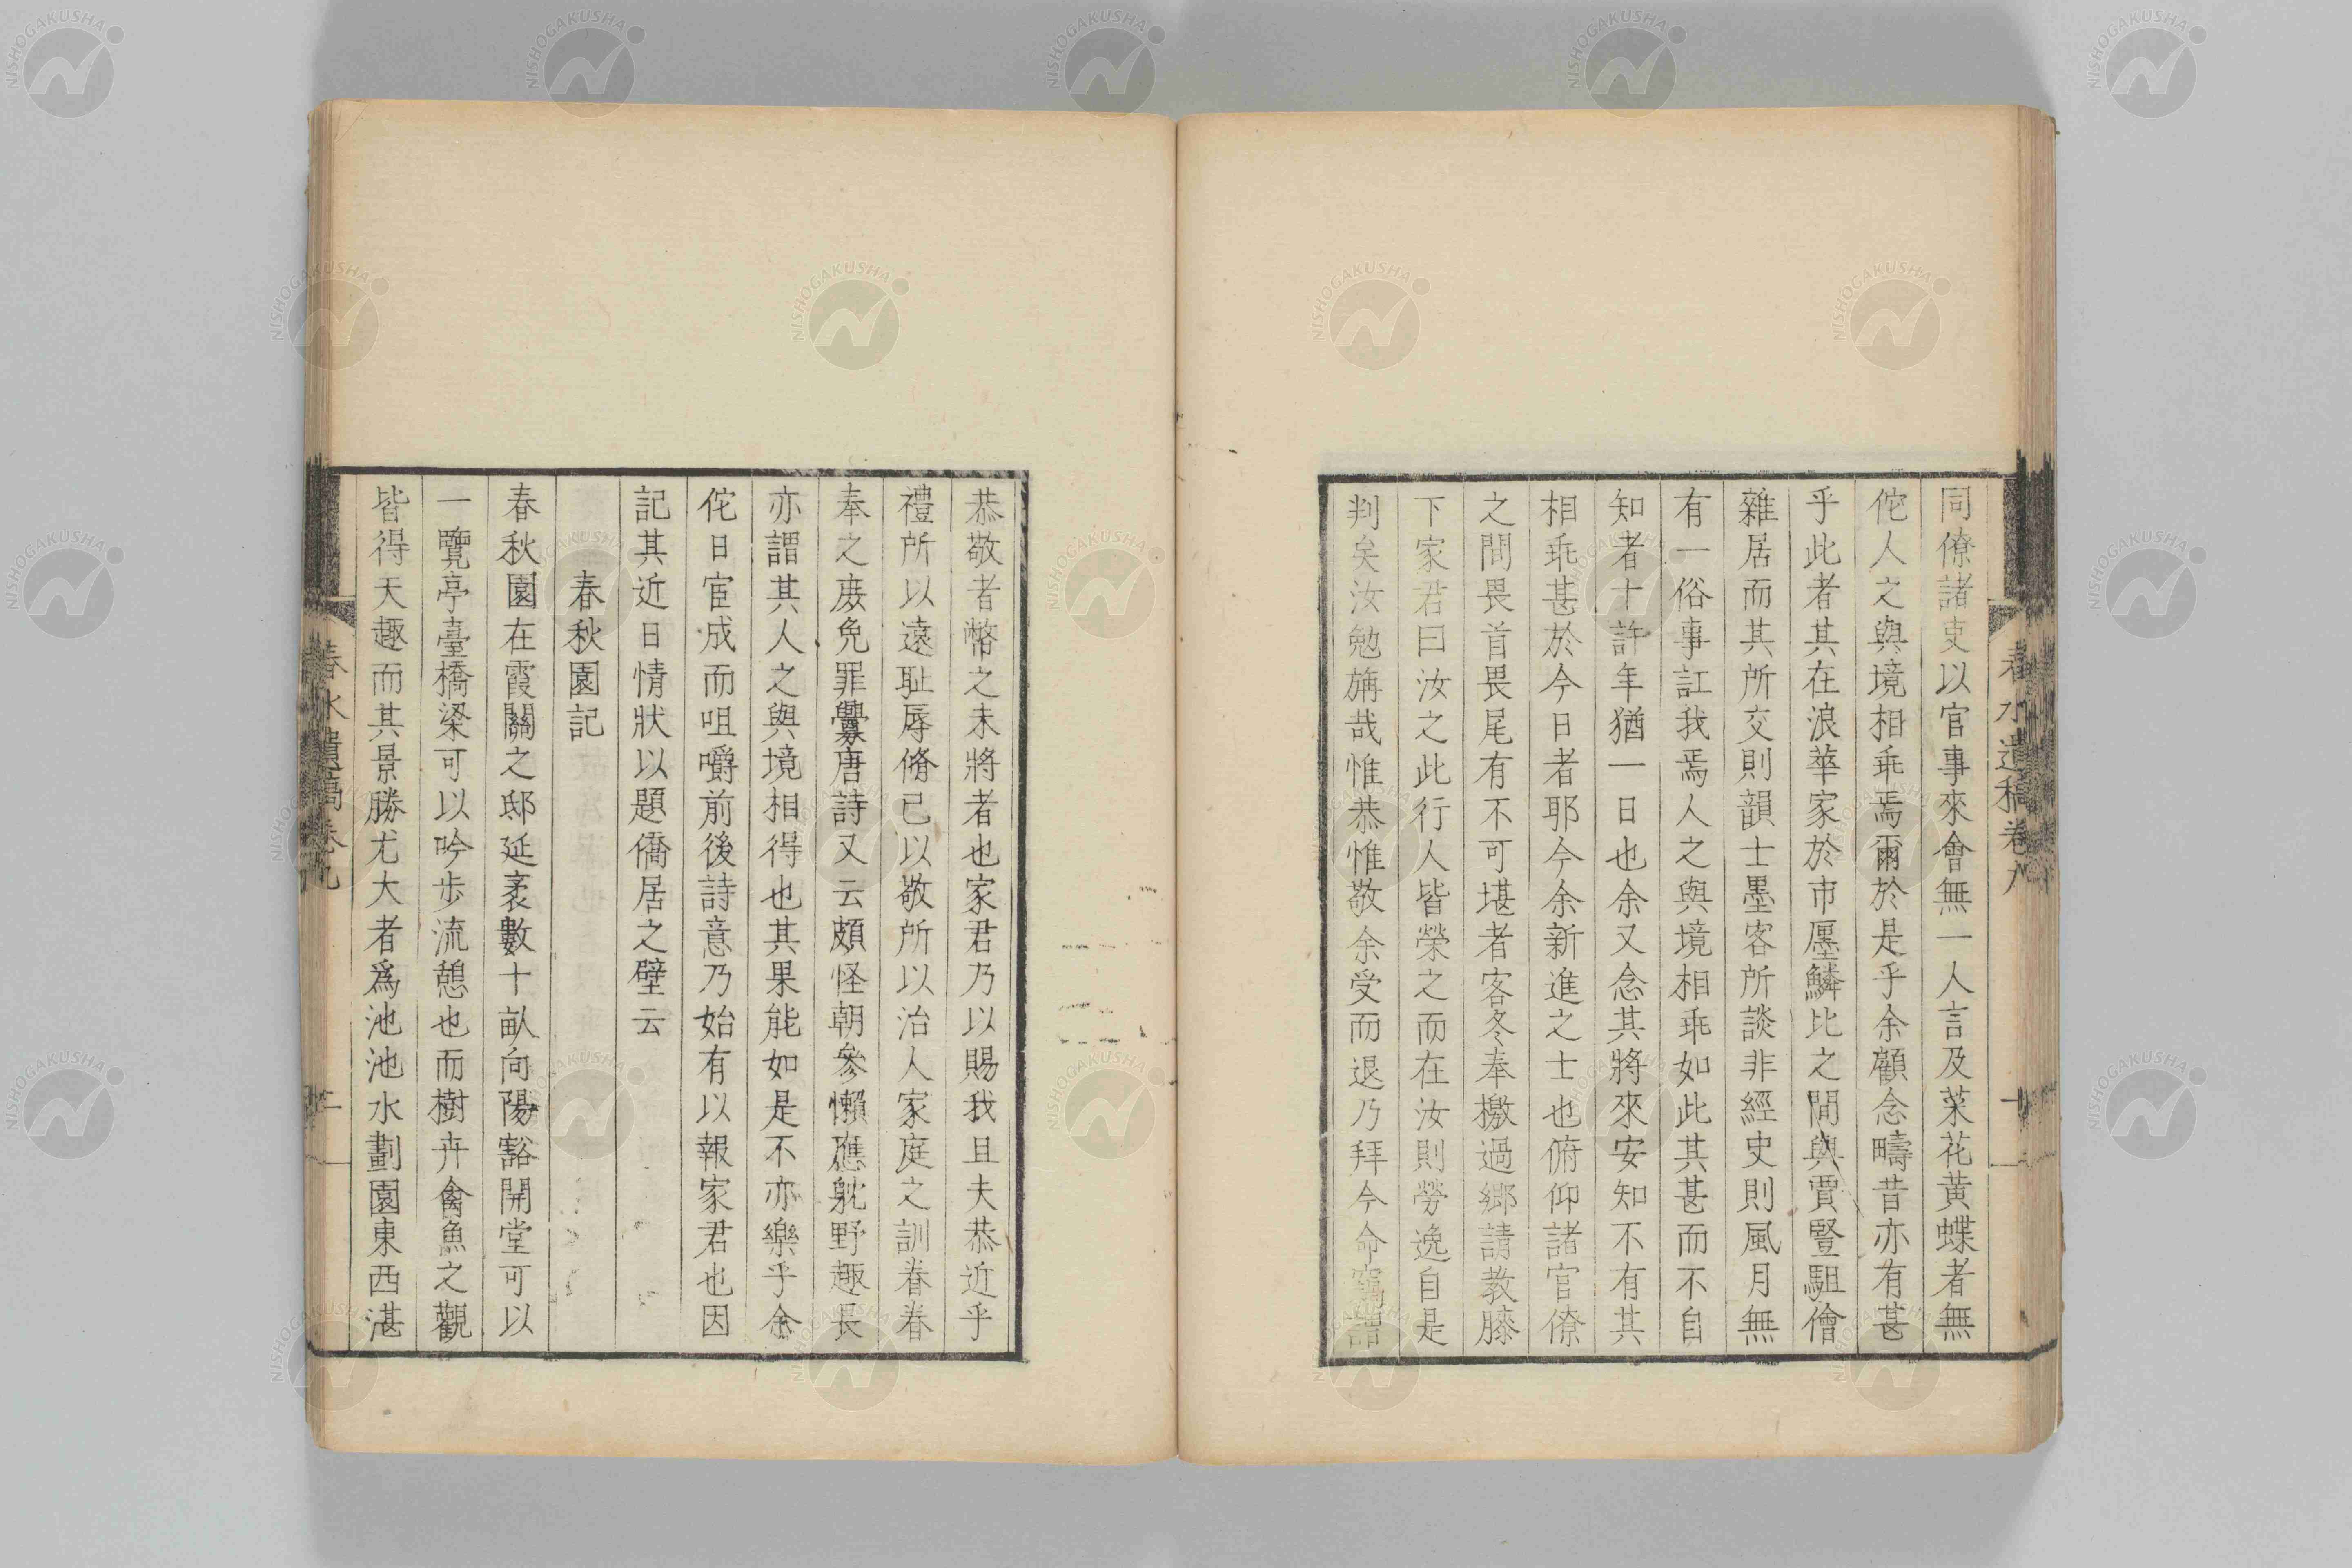 同僚諸吏以官事來會無一人言及菜花黄蝶者無
佗人之與境相乖焉爾於是乎余顧念疇昔亦有甚
乎此者其在浪華家於市廛鱗比之間與賈豎駔儈
雜居而其所交則韻士墨客所談非經史則風月無
有一俗事訌我焉人之與境相乖如此其甚而不自
知者十許年猶一日也余又念其將來安知不有其
相乖甚於今日者耶今余新進之士也俯仰諸官僚
之間畏首畏尾有不可堪者客冬奉檄過鄉請教膝
下家君曰汝之此行人皆榮之而在汝則勞逸自是
判矣汝勉旃哉惟恭惟敬余受而退乃拜今命竊謂
恭敬者幣之未將者也家君乃以賜我且夫恭近乎
禮所以遠耻辱脩己以敬所以治人家庭之訓眷眷
奉之庶免罪釁唐詩又云頗怪朝參懶應躭野趣長
亦謂其人之與境相得也其果能如是不亦樂乎余
佗日宦成而咀嚼前後詩意乃始有以報家君也因
記其近日情狀以題僑居之壁云
春秋園記
春秋園在霞關之邸延袤數十畝向陽豁開堂可以
一覽亭臺橋梁可以吟歩流憩也而樹卉禽魚之觀
皆得天趣而其景勝尤大者爲池池水劃園東西湛
春水遺稿卷九
NISHOGAKUSHA